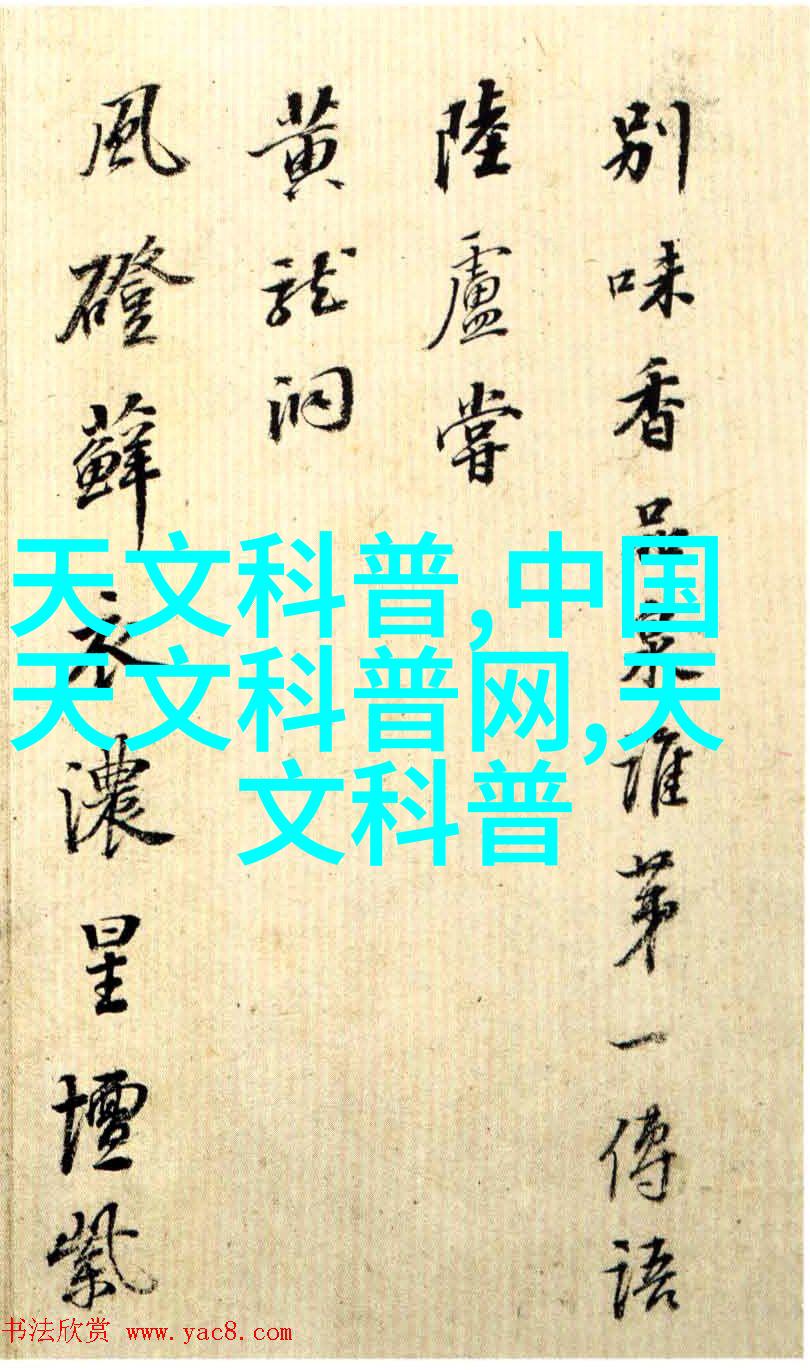 别味香品泉谁苐一傳語
陸盧嘗
黄龍洞
風磴蘚衣濃星壇紫
天文科普,中国
天文科普网,天
文科普
书法欣赏 www.yac8.com